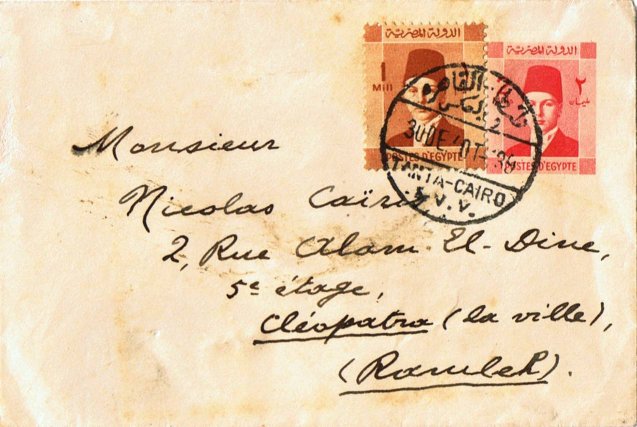 الدولة المصرية
1
Mill
POSTES D'EGYPTE
الدولة المصرية
٢
مليمان
POSTES D'EGYPTE
30 DE 40
TANTA-CAIRO
Monsieur
Nicolas
2, Rue Alam El-Dine,
5e étage,
Cléopatra (la ville),
(Ramleh).